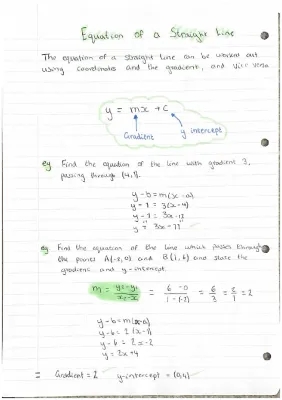 Equation of a Straight Line
The equation of a straight line can be worked out
using coordinates and the gradient, and vice versa
y = mx + c
Gradient
y intercept
eg Find the equation of the line with gradient 3,
passing through (4,1).
y - b = m(x - a)
y - 1 = 3(x - 4)
y - 1 = 3x - 12
y = 3x - 11
eg Find the equation of the line which passes through
the points A(-2,0) and B(1,6) and state the
gradient and y-intercept.
m = y2 - y1 / x2 - x1 = 6 - 0 / 1 - (-2) = 6 / 3 = 2 / 1 = 2
y - b = m(x - a)
y - 6 = 2(x - 1)
y - 6 = 2x - 2
y = 2x + 4
= Gradient = 2 y-intercept = (0,4)